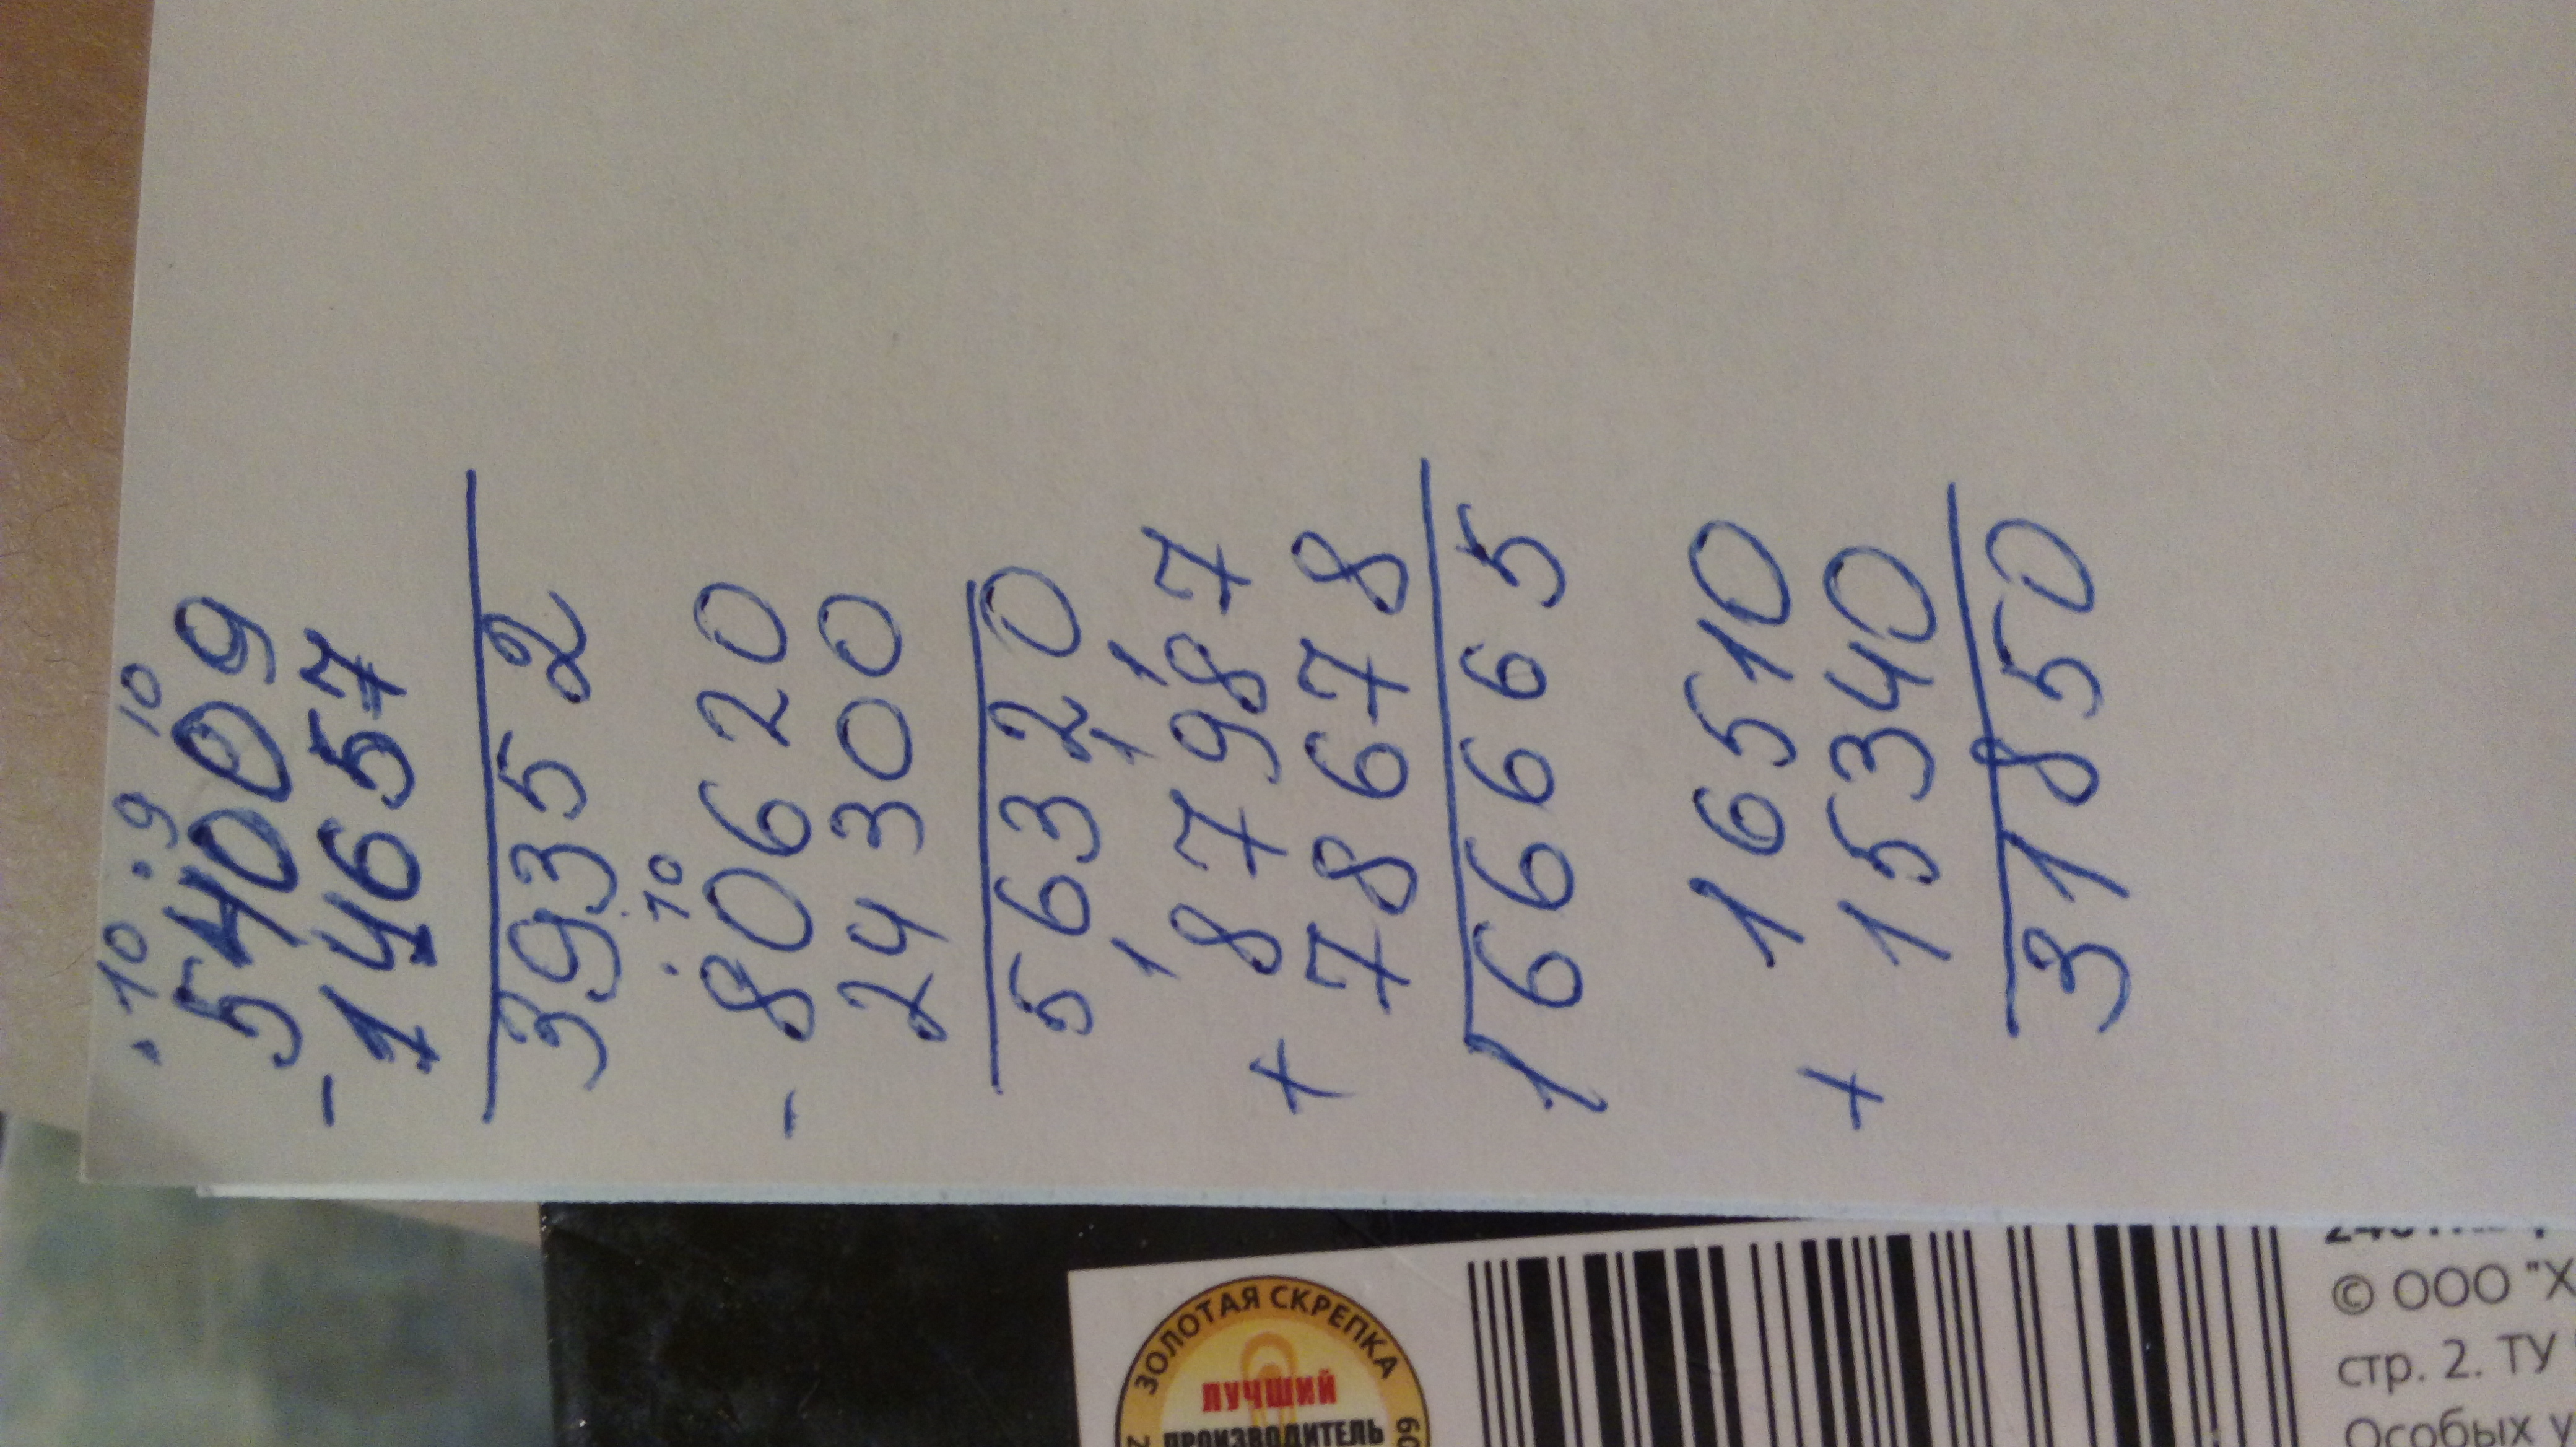 . 10 . 9 10
54009
- 14657
39352
. 10
80620
- 24300
56320
1 1 1
87987
+ 78678
166665
16510
+ 15340
31850
ЗОЛОТАЯ СКРЕПКА
ЛУЧШИЙ
ПРОИЗВОДИТЕЛЬ
© ООО "Х
стр. 2. ТУ
Особых у